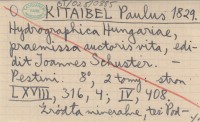 KITAIBEL Paulus 1829.
Hydrographica Hungariae,
praemissa auctoris vita, edi-
dit Joannes Schuster. —
Pestini. 8°, 2 tomy: stron
LXVIII, 316, 4; IV, 408.
Źródła mineralne, też Pod-